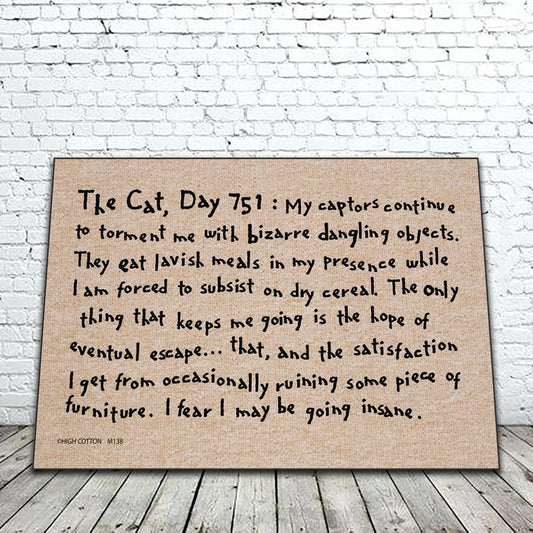 The Cat, Day 751 : My captors continue
to torment me with bizarre dangling objects.
They eat lavish meals in my presence while
I am forced to subsist on dry cereal. The only
thing that keeps me going is the hope of
eventual escape... that, and the satisfaction
I get from occasionally ruining some piece of
furniture. I fear I may be going insane.
©HIGH COTTON M138